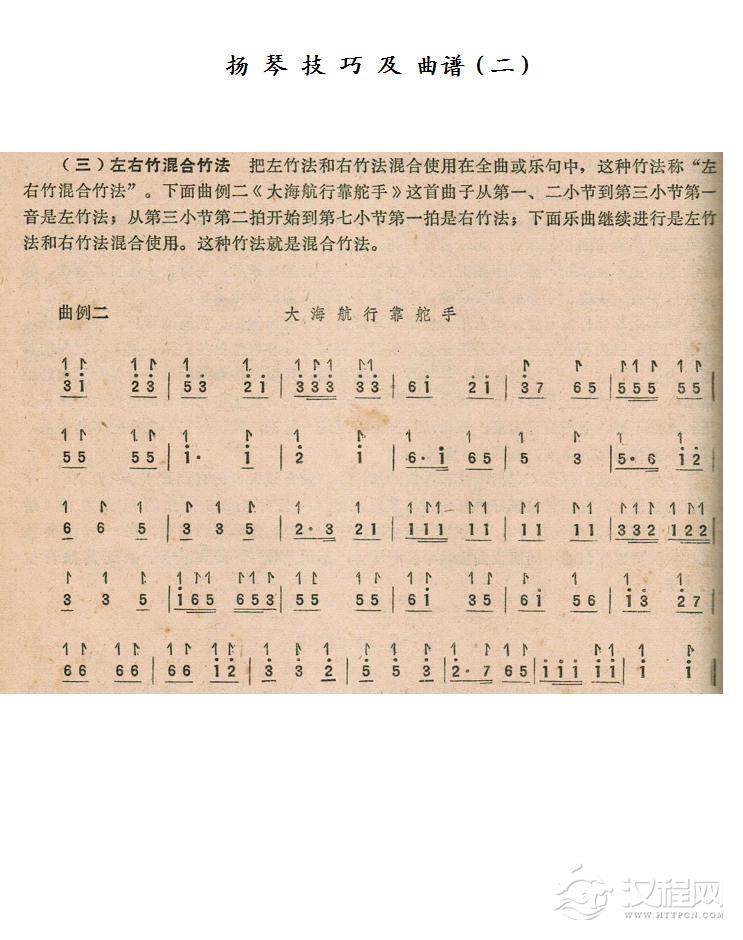 扬琴技巧及曲谱(二)
（三）左右竹混合竹法 把左竹法和右竹法混合使用在全曲或乐句中，这种竹法称“左
右竹混合竹法”。下面曲例二《大海航行靠舵手》这首曲子从第一、二小节到第三小节第一
音是左竹法；从第三小节第二拍开始到第七小节第一拍是右竹法；下面乐曲继续进行是左竹
法和右竹法混合使用。这种竹法就是混合竹法。
曲例二 大海航行靠舵手
3i 23 | 53 2i | 333 33 | 6i 2i | 37 65 | 555 55 |
55 55 | i· i | 2 i | 6·i 65 | 5 3 | 5·6 i2 |
6 6 5 | 3 3 5 | 2·3 21 | 111 11 | 11 11 | 332 122 |
3 3 5 | i65 653 | 55 55 | 6i 35 | 6i 56 | i3 27 |
66 66 | 66 i2 | 3 3 2 | 5 5 3 | 2·7 65 | iii ii | i i |
汉程网
WWW.HTTPCN.COM